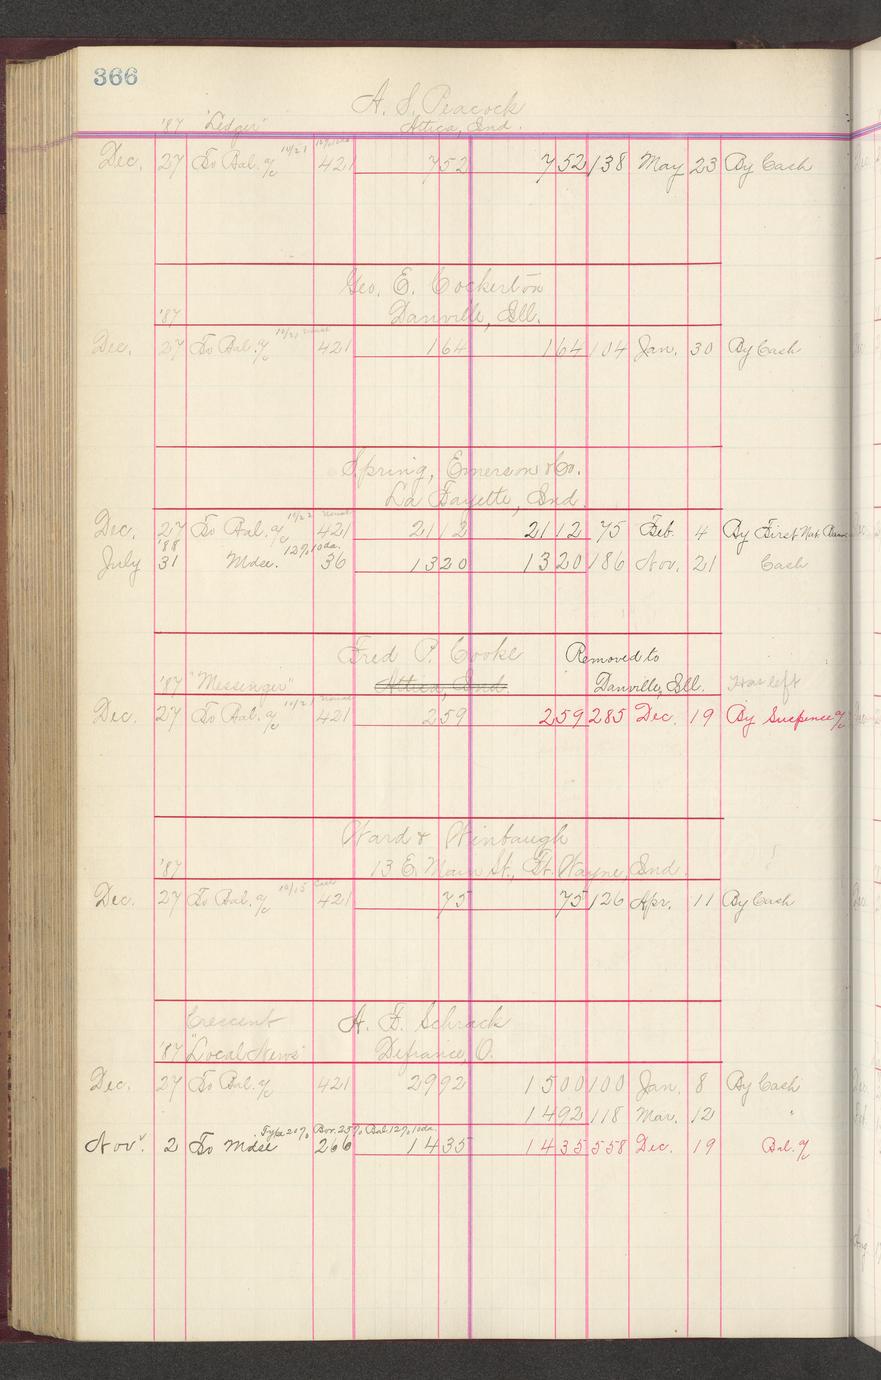 366
A. S. Peacock
'87 "Ledger" Attica, Ind.
Dec. 27 To Bal. a/c 10/21 421 752 752 138 May 23 By Cash
Geo. E. Cockerton
'87 Danville, Ill.
Dec. 27 To Bal. a/c 10/21 421 164 164 104 Jan. 30 By Cash
Spring, Emerson & Co.
La Fayette, Ind.
Dec. 27 To Bal. a/c 10/22 421 2112 2112 75 Feb. 4 By First Nat.
'88 12% 10 da.
July 31 Mdse. 36 1320 1320 186 Nov. 21 Cash
Fred P. Cooke Removed to
'87 "Messenger" Attica, Ind Danville, Ill. Has left
Dec. 27 To Bal. a/c 10/21 421 259 259 285 Dec. 19 By Suspence a/c
Ward & Winbaugh
'87 13 E. Main St., Ft. Wayne, Ind.
Dec. 27 To Bal. a/c 10/15 421 75 75 126 Apr. 11 By Cash
Crescent A. F. Schrack
'87 "Local News" Defiance, O.
Dec. 27 To Bal. a/c 421 2992 1500 100 Jan. 8 By Cash
1492 118 Mar. 12 "
Type 20% Bor. 25% Bal. 12% 10 da.
Nov. 2 To Mdse 266 1435 1435 558 Dec. 19 Bal. a/c